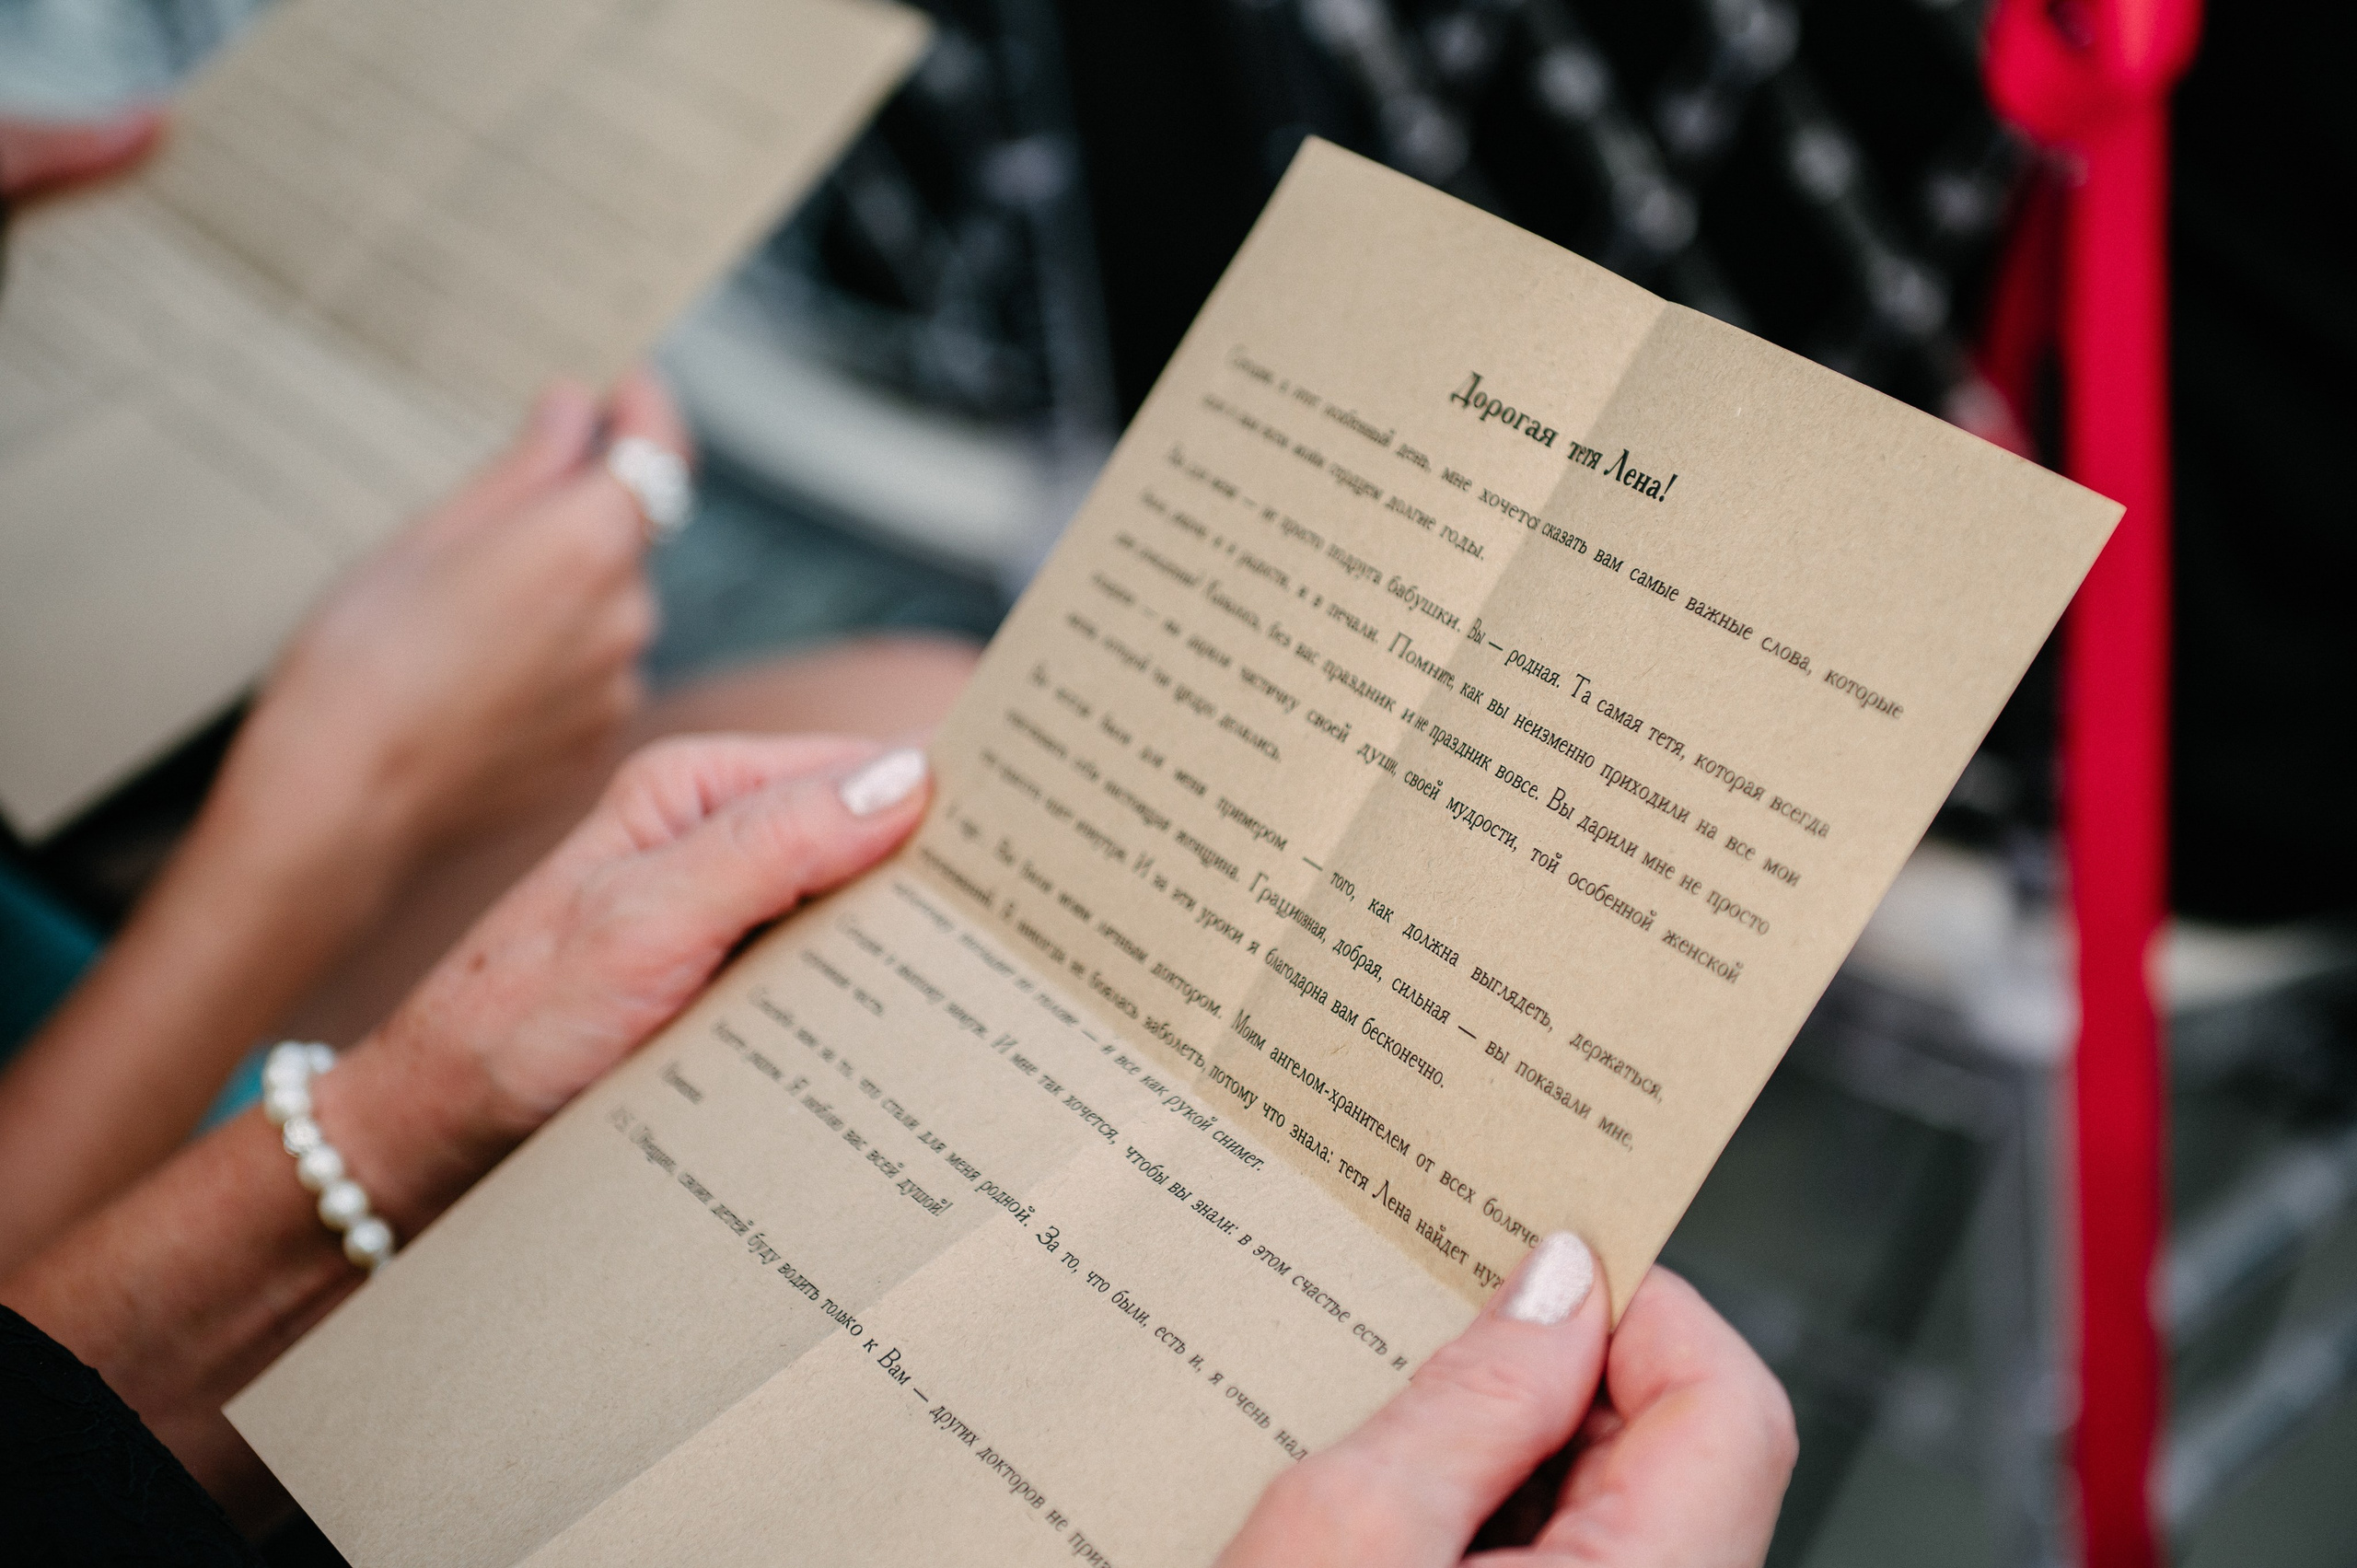 Дорогая тетя Лена!
Сегодня, в этот особенный день, мне хочется сказать вам самые важные слова, которые
долгие годы.
Вы для меня — не просто подруга бабушки. Вы — родная. Та самая тетя, которая всегда
и в радости, и в печали. Помните, как вы неизменно приходили на все мои
без вас праздник и не праздник вовсе. Вы дарили мне не просто
частичку своей души, своей мудрости, той особенной женской
которой так щедро делились.
Вы всегда были для меня примером — того, как должна выглядеть, держаться,
настоящая женщина. Грациозная, добрая, сильная — вы показали мне,
И за эти уроки я благодарна вам бесконечно.
Вы были моим личным доктором. Моим ангелом-хранителем от всех боляче
Я никогда не боялась заболеть, потому что знала: тетя Лена найдет нуж
— и все как рукой снимет.
И мне так хочется, чтобы вы знали: в этом счастье есть и
часть.
Спасибо вам за то, что стали для меня родной. За то, что были, есть и, я очень над
Я люблю вас всей душой!
P.S. своих детей буду водить только к Вам — других докторов не приз